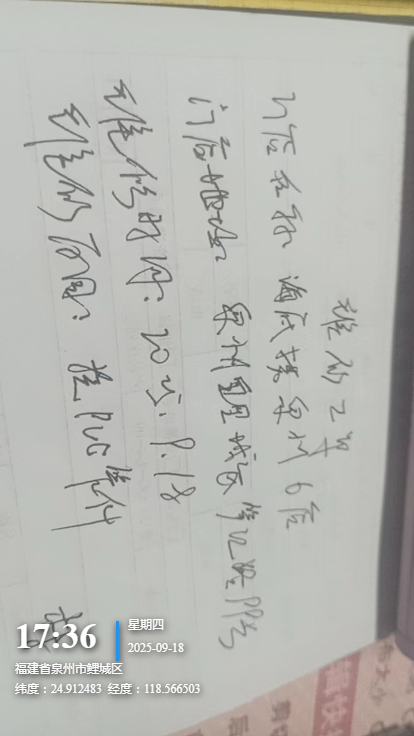 维修工单
门店名称 海底捞泉州6店
门店地址: 泉州鲤城区
维修时间: 2025.9.18
维修范围: 换PVC管件
17:36
星期四
2025-09-18
福建省泉州市鲤城区
纬度：24.912483 经度：118.566503